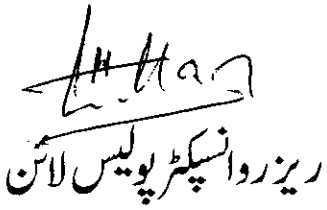 ریزرو انسپکٹر پولیس لائن